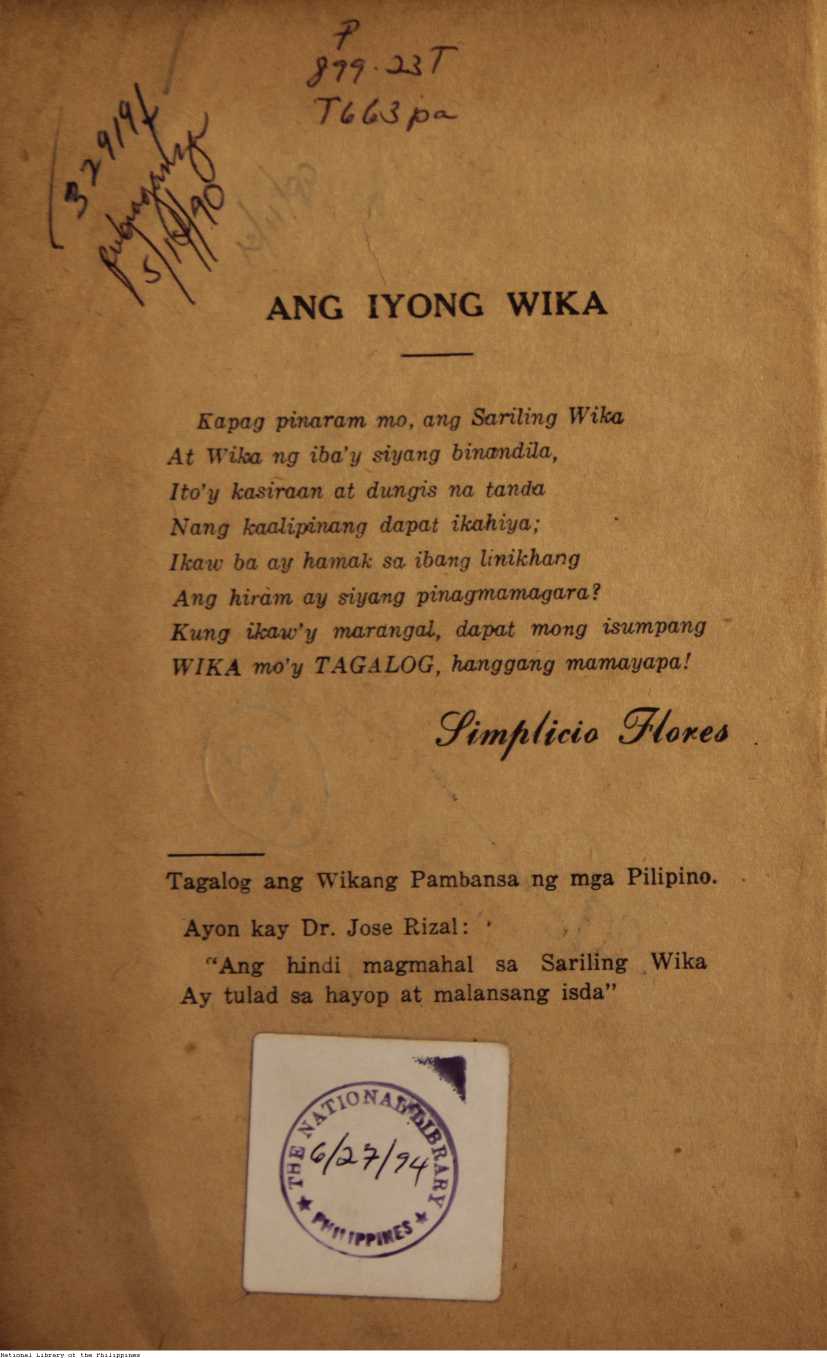 P
899.23T
T663pa
32919
5/10/90
ANG IYONG WIKA
Kapag pinaram mo, ang Sariling Wika
At Wika ng iba'y siyang binandila,
Ito'y kasiraan at dungis na tanda
Nang kaalipinang dapat ikahiya;
Ikaw ba ay hamak sa ibang linikhang
Ang hiram ay siyang pinagmamagara?
Kung ikaw'y marangal, dapat mong isumpang
WIKA mo'y TAGALOG, hanggang mamayapa!
Simplicio Flores
Tagalog ang Wikang Pambansa ng mga Pilipino.
Ayon kay Dr. Jose Rizal:
"Ang hindi magmahal sa Sariling Wika
Ay tulad sa hayop at malansang isda"
THE NATIONAL LIBRARY
6/27/94
PHILIPPINES
National Library of the Philippines